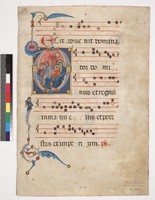 Ecce adve nit domina
tor do mi
nus et regnum
in manu e ius et pote
stas et imperi um. ps.